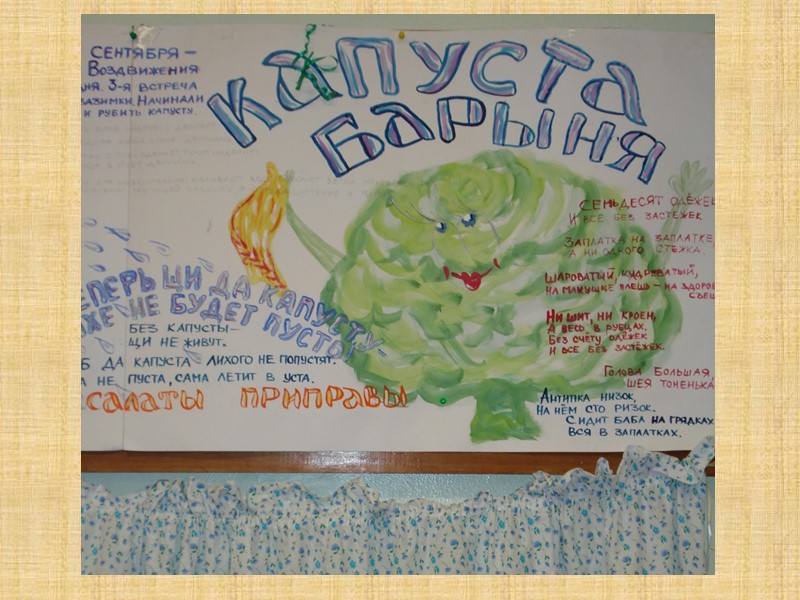 СЕНТЯБРЯ –
ВОЗДВИЖЕНИЯ
3-Я ВСТРЕЧА
НАЧИНАЛИ
И РУБИТЬ КАПУСТУ.
КАПУСТА
БАРЫНЯ
ЩИ ДА КАПУСТУ-
НЕ БУДЕТ ПУСТО!
БЕЗ КАПУСТЫ –
ЩИ НЕ ЖИВУТ.
ДА КАПУСТА ЛИХОГО НЕ ПОПУСТЯТ.
НЕ ПУСТА, САМА ЛЕТИТ В УСТА.
САЛАТЫ ПРИПРАВЫ
СЕМЬДЕСЯТ ОДЁЖЕК
И ВСЕ БЕЗ ЗАСТЁЖЕК
ЗАПЛАТКА НА ЗАПЛАТКЕ,
А НИ ОДНОГО СТЕЖКА.
ШАРОВАТЫЙ, КУДРЕВАТЫЙ,
НА МАКУШКЕ ПЛЕШЬ – НА
НИ ШИТ, НИ КРОЕН,
А ВЕСЬ В РУБЦАХ.
БЕЗ СЧЁТУ ОДЁЖЕК
И ВСЕ БЕЗ ЗАСТЁЖЕК.
ГОЛОВА БОЛЬШАЯ,
ШЕЯ ТОНЕНЬКА
АНТИПКА НИЗОК,
НА НЁМ СТО РИЗОК.
СИДИТ БАБА НА ГРЯДКАХ
ВСЯ В ЗАПЛАТКАХ.